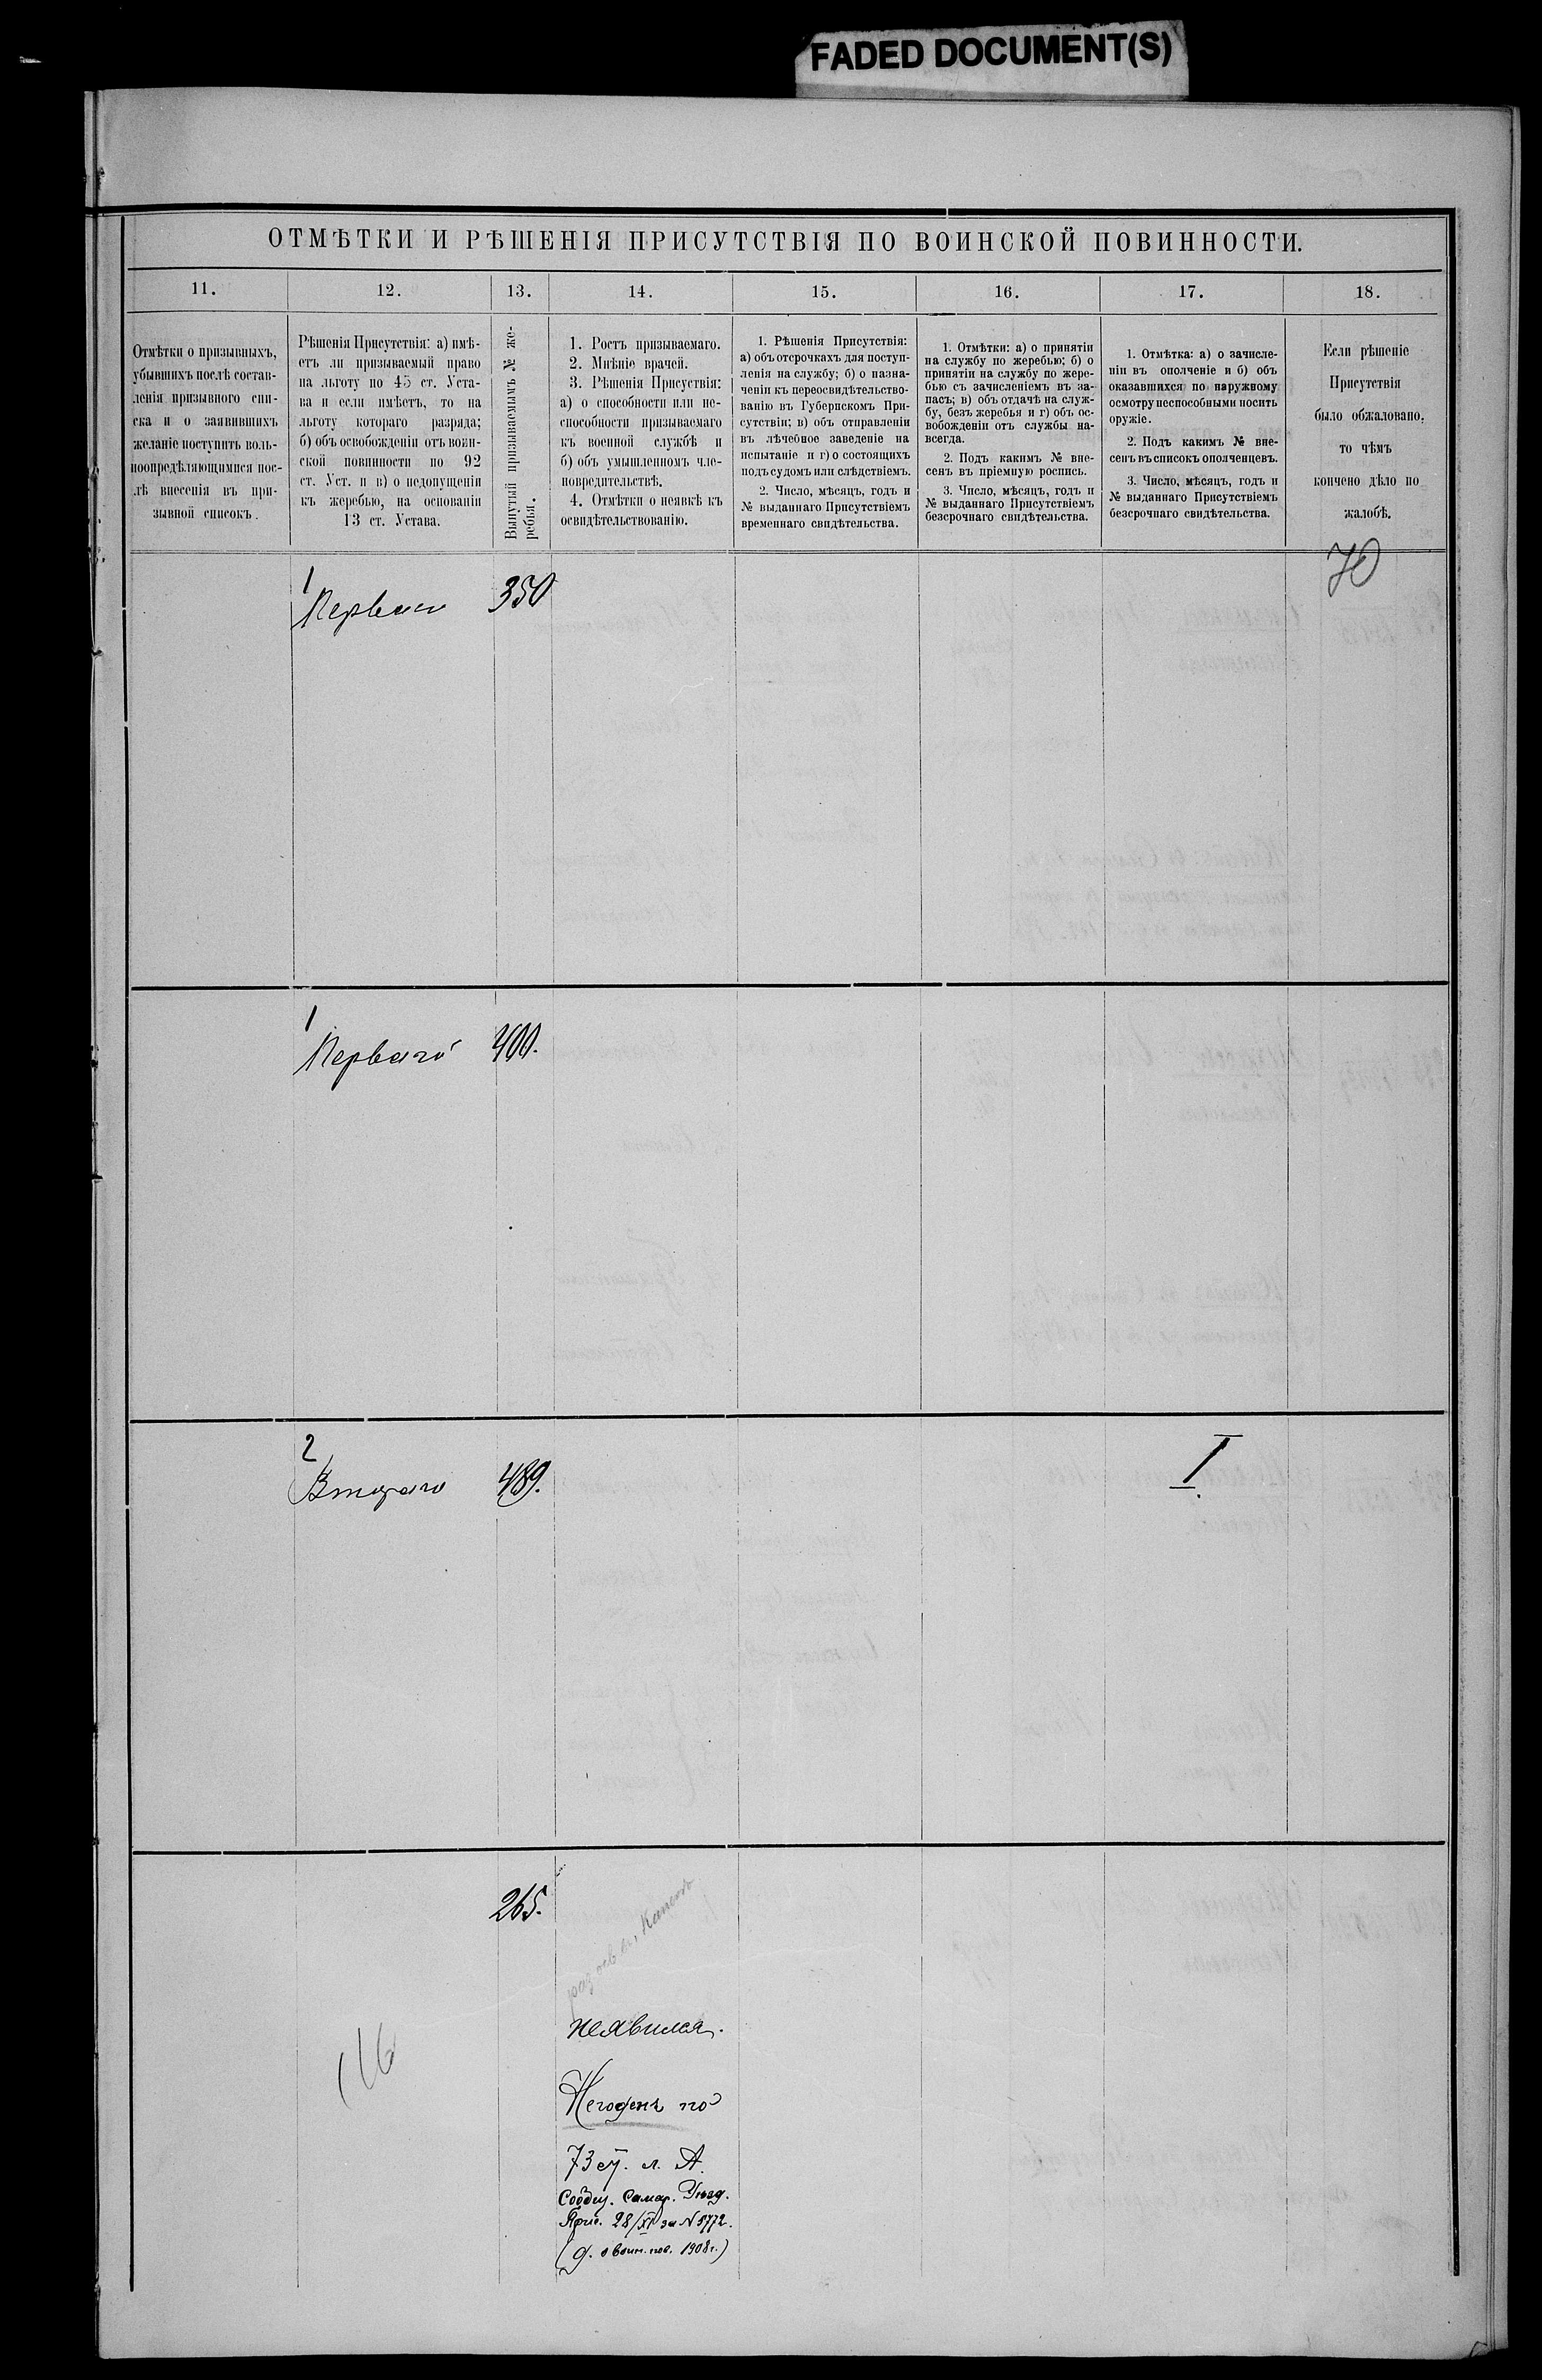 FADED DOCUMENT(S)
ОТМѢТКИ И РѢШЕНІЯ ПРИСУТСТВІЯ ПО ВОИНСКОЙ ПОВИННОСТИ.
11.
12.
13.
14.
15.
16.
17.
18.
Отмѣтки о призывныхъ,
убывшихъ послѣ состав-
ленія призывного спи-
ска и о заявившихъ
желаніе поступить воль-
ноопредѣляющимися пос-
лѣ внесенія въ при-
зывной списокъ.
Рѣшенія Присутствія: а) имѣ-
етъ ли призываемый право
на льготу по 45 ст. Уста-
ва и если имѣетъ, то на
льготу котораго разряда;
б) объ освобожденіи отъ воин-
ской повинности по 92
ст. Уст. и в) о недопущеніи
къ жеребью, на основаніи
13 ст. Устава.
Вынутый призываемымъ № же-
ребья.
1. Ростъ призываемаго.
2. Мнѣніе врачей.
3. Рѣшенія Присуствія:
а) о способности или не-
способности призываемаго
къ военной службѣ и
б) объ умышленномъ чле-
новредительствѣ.
4. Отмѣтки о неявкѣ къ
освидѣтельствованію.
1. Рѣшенія Присутствія:
а) объ отсрочкахъ для поступ-
ленія на службу; б) о назна-
ченіи къ переосвидѣтельство-
ванію въ Губернскомъ При-
сутствіи; в) объ отправленіи
въ лѣчебное заведеніе на
испытаніе и г) о состоящихъ
подъ судомъ или слѣдствіемъ.
2. Число, мѣсяцъ, годъ и
№ выданнаго Присутствіемъ
временнаго свидѣтельства.
1. Отмѣтки: а) о принятіи
на службу по жеребью; б) о
принятіи на службу по жере-
бью съ зачисленіемъ въ за-
пасъ; в) объ отдачѣ на служ-
бу, безъ жеребья и г) объ ос-
вобожденіи отъ службы на-
всегда.
2. Подъ какимъ № вне-
сенъ въ пріемную роспись.
3. Число, мѣсяцъ, годъ и
№ выданнаго Присутствіемъ
безсрочнаго свидѣтельства.
1. Отмѣтка: а) о зачисле-
ніи въ ополченіе и б) объ
оказавшихся по наружному
осмотру неспособными носить
оружіе.
2. Подъ какимъ № вне-
сенъ въ списокъ ополченцевъ.
3. Число, мѣсяцъ, годъ и
№ выданнаго Присутствіемъ
безсрочнаго свидѣтельства.
Если рѣшеніе
Присутствія
было обжаловано,
то чѣмъ
кончено дѣло по
жалобѣ.
70
1
Перваго 350
1
Перваго 400.
2
Втораго 489.
I
265.
неявился.
116
Негоденъ по
73 ст. л. А.
Сообщ. Самар. Уѣзд.
Прис. 28/XI за № 5772.
(д. о воин. пов. 1908 г.)